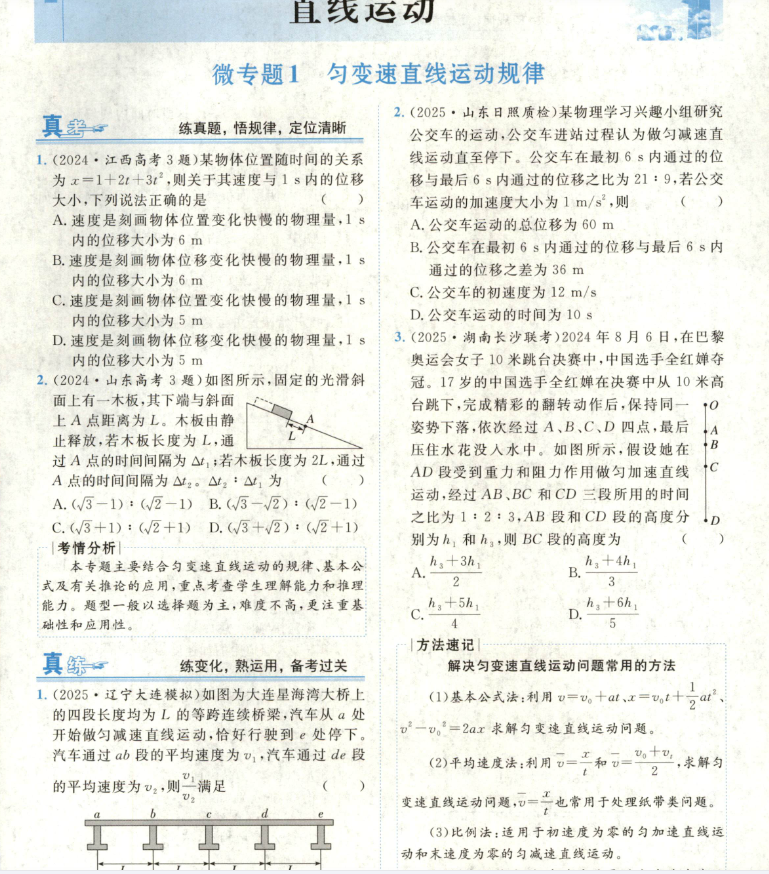 直线运动
微专题1 匀变速直线运动规律
真考
练真题,悟规律,定位清晰
1.(2024·江西高考3题)某物体位置随时间的关系
为x=1+2t+3t²,则关于其速度与1 s内的位移
大小,下列说法正确的是 ( )
A.速度是刻画物体位置变化快慢的物理量,1 s
内的位移大小为6 m
B.速度是刻画物体位移变化快慢的物理量,1 s
内的位移大小为6 m
C.速度是刻画物体位置变化快慢的物理量,1 s
内的位移大小为5 m
D.速度是刻画物体位移变化快慢的物理量,1 s
内的位移大小为5 m
2.(2024·山东高考3题)如图所示,固定的光滑斜
面上有一木板,其下端与斜面
上A点距离为L。木板由静
止释放,若木板长度为L,通
过A点的时间间隔为Δt₁;若木板长度为2L,通过
A点的时间间隔为Δt₂。Δt₂∶Δt₁为 ( )
A.(√3-1)∶(√2-1) B.(√3-√2)∶(√2-1)
C.(√3+1)∶(√2+1) D.(√3+√2)∶(√2+1)
A
L
考情分析
本专题主要结合匀变速直线运动的规律、基本公
式及有关推论的应用,重点考查学生理解能力和推理
能力。题型一般以选择题为主,难度不高,更注重基
础性和应用性。
真练
练变化,熟运用,备考过关
1.(2025·辽宁大连模拟)如图为大连星海湾大桥上
的四段长度均为L的等跨连续桥梁,汽车从a处
开始做匀减速直线运动,恰好行驶到e处停下。
汽车通过ab段的平均速度为v₁,汽车通过de段
的平均速度为v₂,则v₁/v₂满足 ( )
a b c d e
2.(2025·山东日照质检)某物理学习兴趣小组研究
公交车的运动,公交车进站过程认为做匀减速直
线运动直至停下。公交车在最初6 s内通过的位
移与最后6 s内通过的位移之比为21∶9,若公交
车运动的加速度大小为1 m/s²,则 ( )
A.公交车运动的总位移为60 m
B.公交车在最初6 s内通过的位移与最后6 s内
通过的位移之差为36 m
C.公交车的初速度为12 m/s
D.公交车运动的时间为10 s
3.(2025·湖南长沙联考)2024年8月6日,在巴黎
奥运会女子10米跳台决赛中,中国选手全红婵夺
冠。17岁的中国选手全红婵在决赛中从10米高
台跳下,完成精彩的翻转动作后,保持同一
姿势下落,依次经过A、B、C、D四点,最后
压住水花没入水中。如图所示,假设她在
AD段受到重力和阻力作用做匀加速直线
运动,经过AB、BC和CD三段所用的时间
之比为1∶2∶3,AB段和CD段的高度分
别为h₁和h₃,则BC段的高度为 ( )
O
A
B
C
D
A.(h₃+3h₁)/2 B.(h₃+4h₁)/3
C.(h₃+5h₁)/4 D.(h₃+6h₁)/5
方法速记
解决匀变速直线运动问题常用的方法
(1)基本公式法:利用v=v₀+at、x=v₀t+1/2at²、
v²-v₀²=2ax求解匀变速直线运动问题。
(2)平均速度法:利用v̄=x/t和v̄=(v₀+vₜ)/2,求解匀
变速直线运动问题,v̄=x/t也常用于处理纸带类问题。
(3)比例法:适用于初速度为零的匀加速直线运
动和末速度为零的匀减速直线运动。